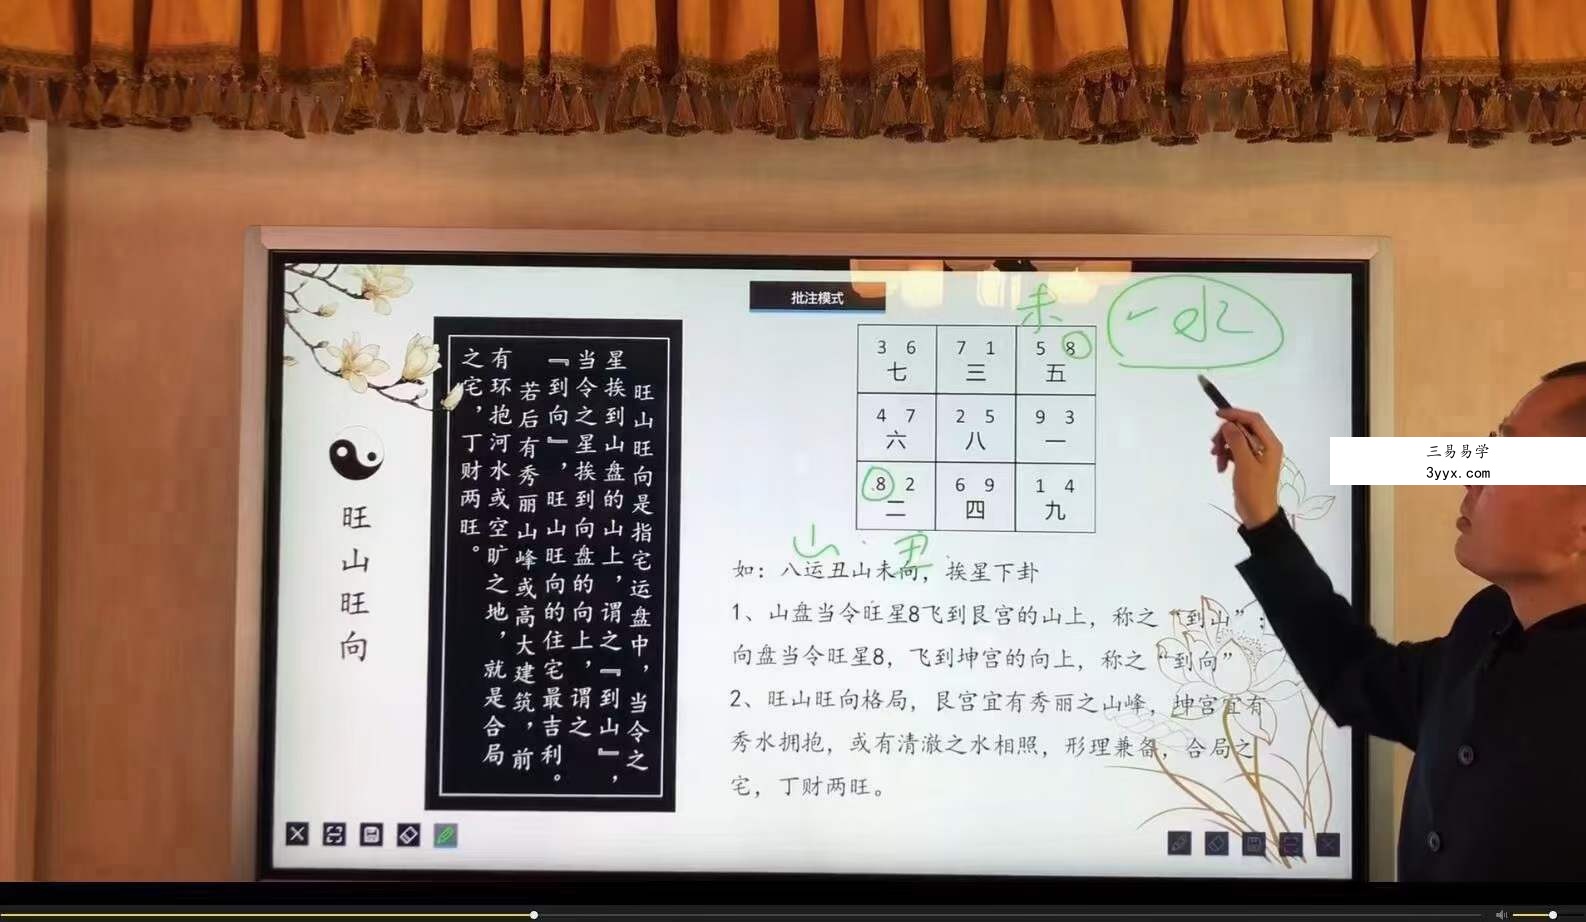 批注模式
未
一水
3 6 7 1 5 8
七 三 五
4 7 2 5 9 3
六 八 一
8 2 6 9 1 4
二 四 九
山 丑
旺山旺向
旺山旺向是指宅运盘中，当令之
星挨到山盘的山上，谓之『到山』，
当令之星挨到向盘的向上，谓之
『到向』，旺山旺向的住宅最吉利。
若后有秀丽山峰或高大建筑，前
有环抱河水或空旷之地，就是合局
之宅，丁财两旺。
如：八运丑山未向，挨星下卦
1、山盘当令旺星8飞到艮宫的山上，称之“到山”；
向盘当令旺星8，飞到坤宫的向上，称之“到向”
2、旺山旺向格局，艮宫宜有秀丽之山峰，坤宫宜有
秀水拥抱，或有清澈之水相照，形理兼备，合局之
宅，丁财两旺。
三易易学
3yyx.com